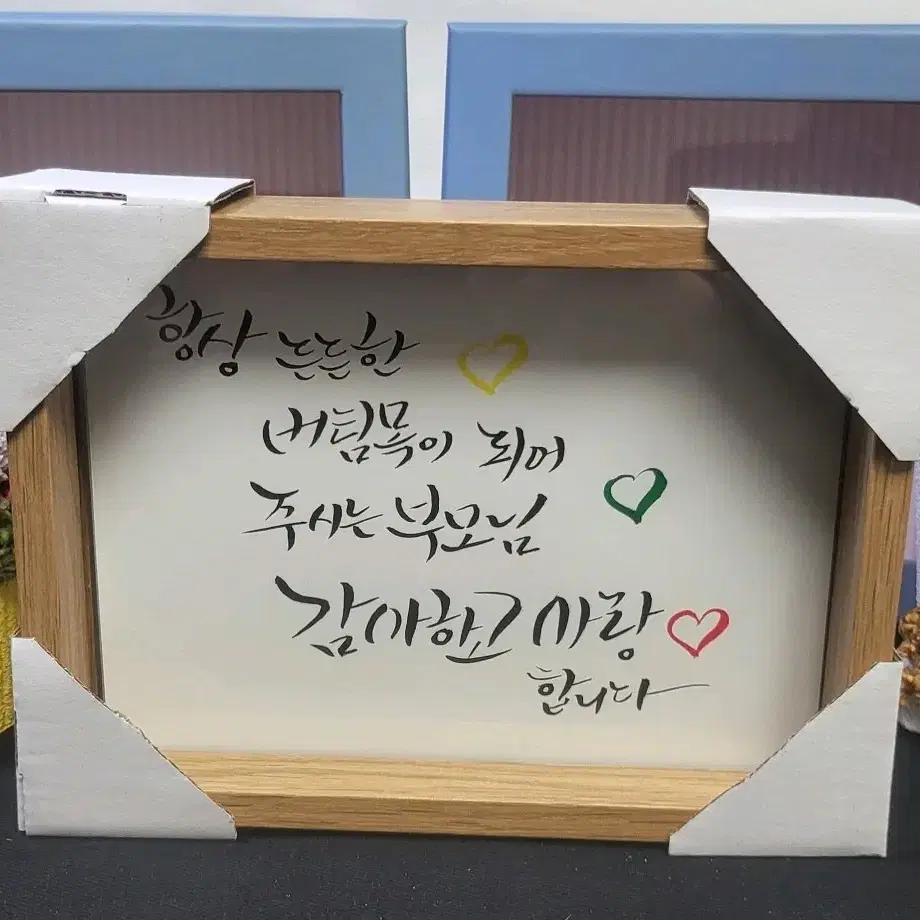 항상 든든한
버팀목이 되어
주시는 부모님
감사하고 사랑
합니다